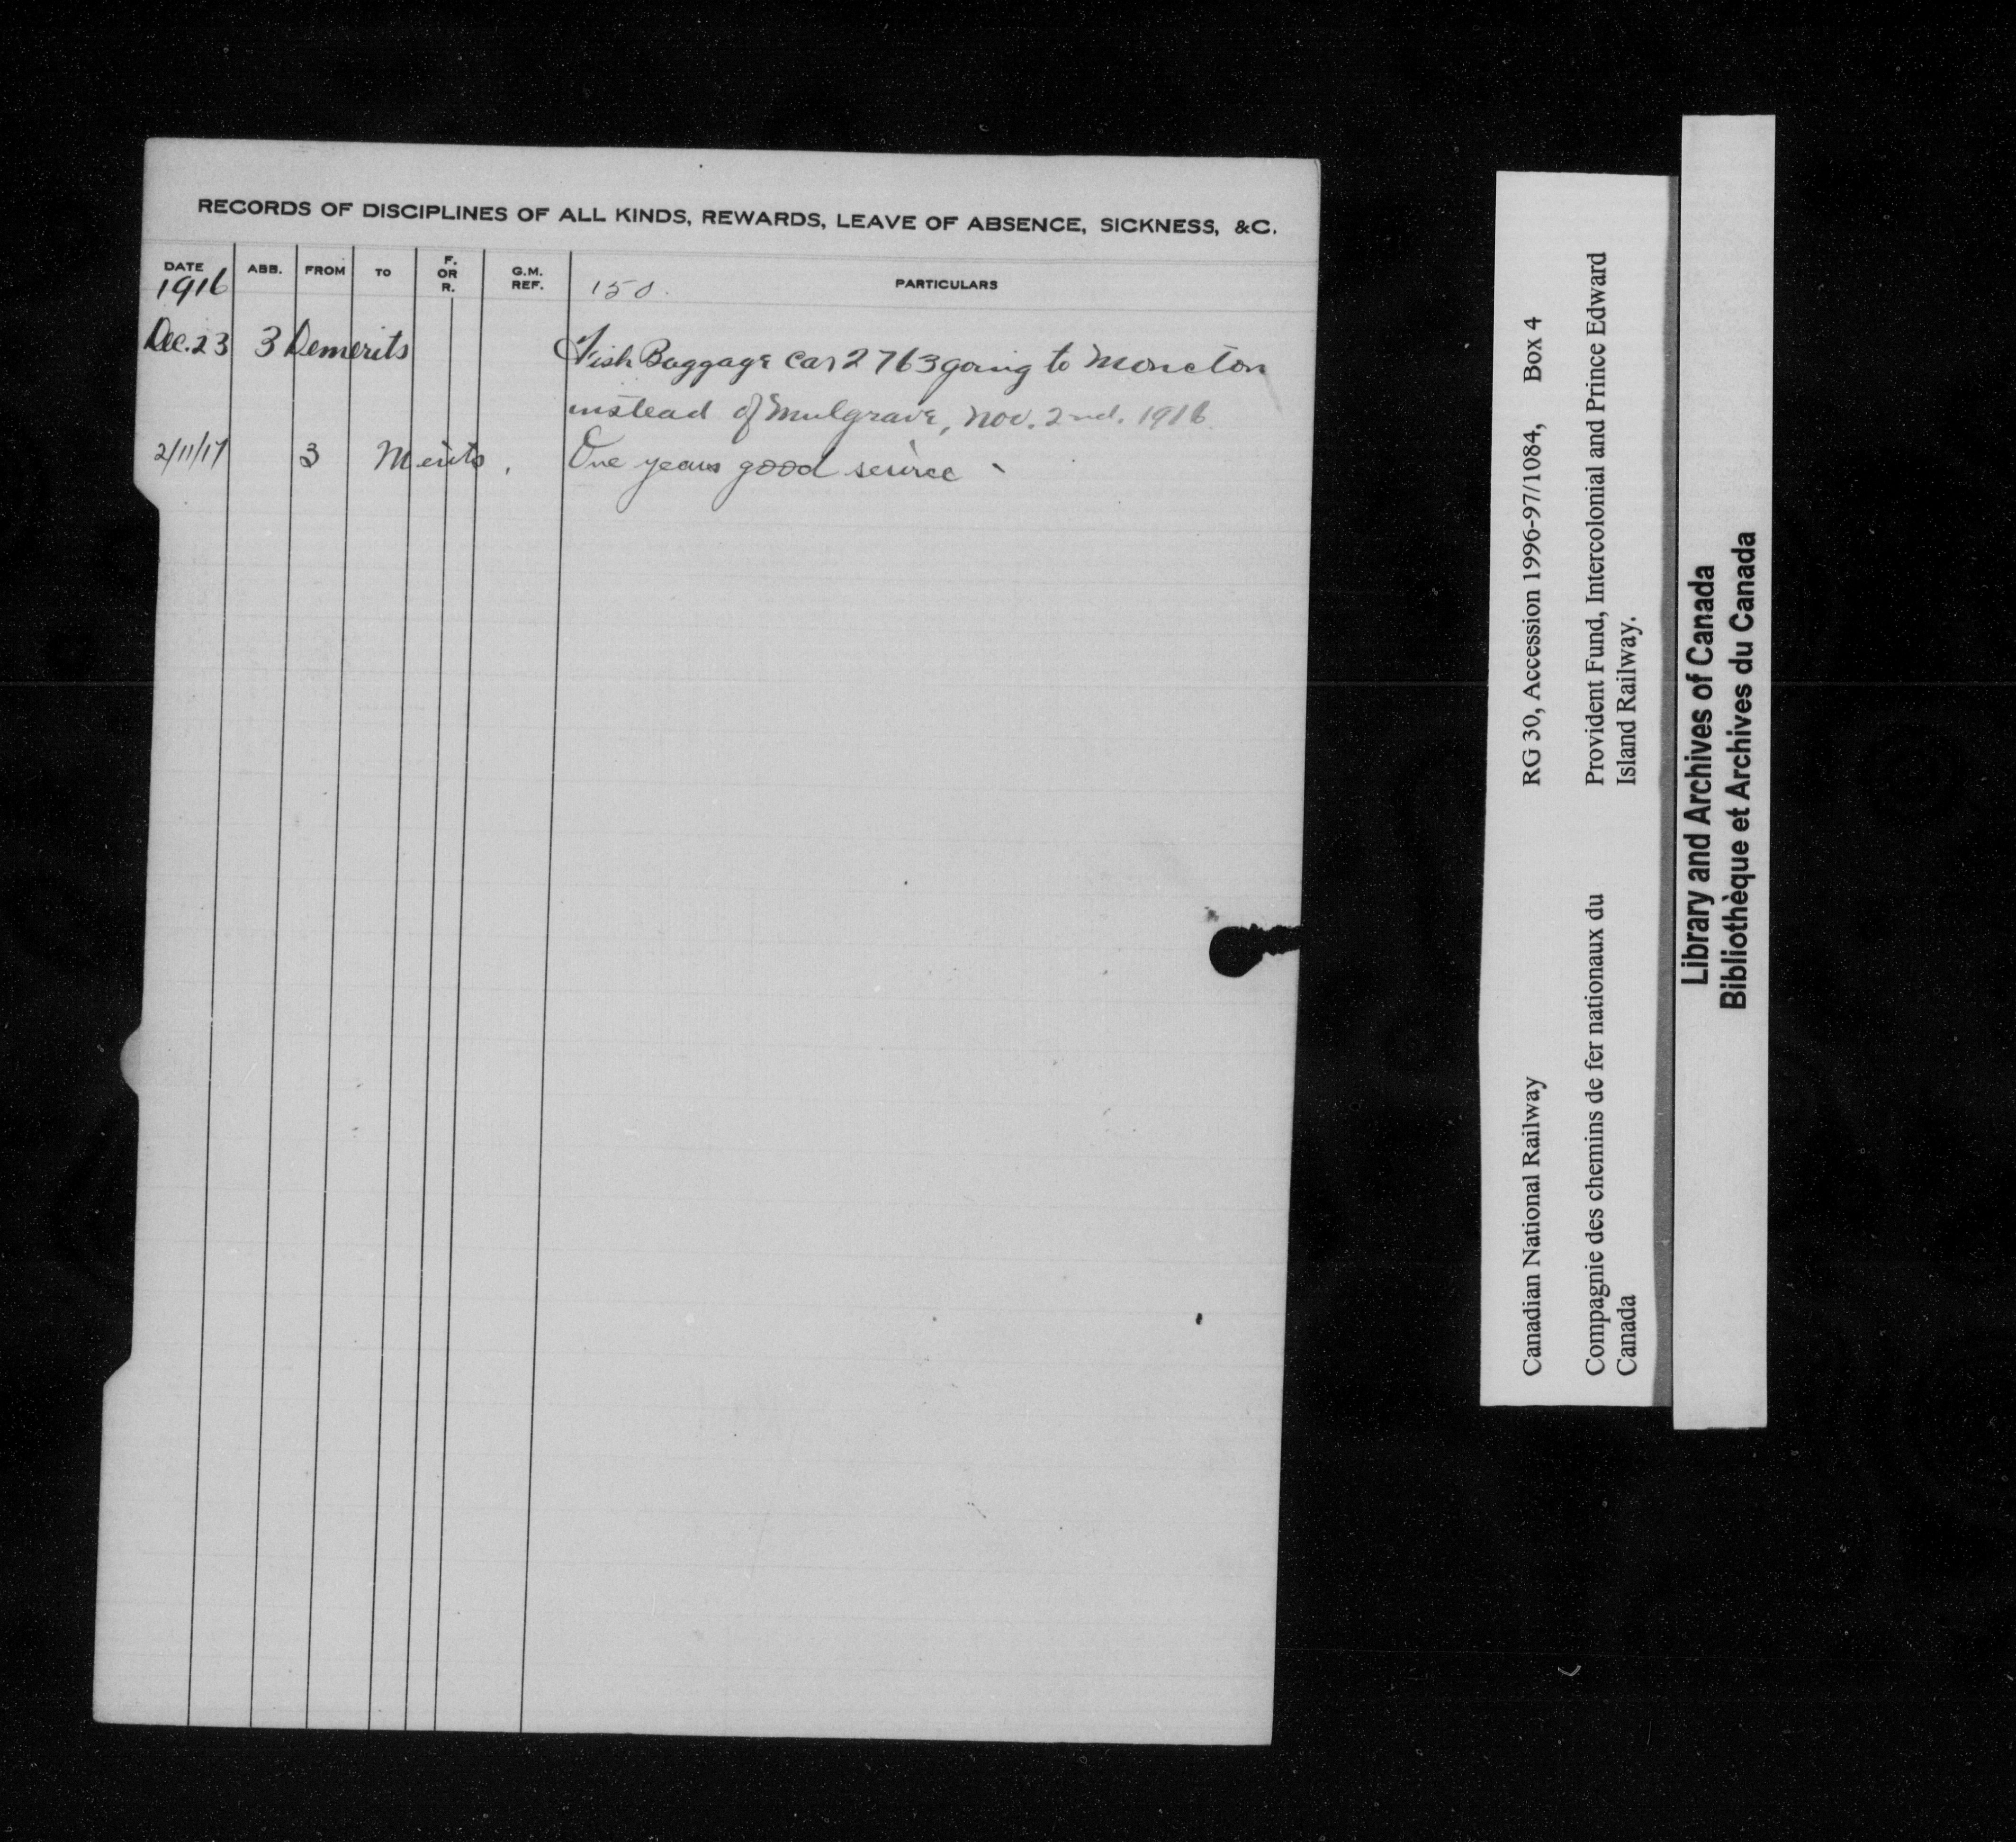 RECORDS OF DISCIPLINES OF ALL KINDS, REWARDS, LEAVE OF ABSENCE, SICKNESS, &C.
DATE ABB. FROM TO F. OR R. G.M. REF. PARTICULARS
1916 150.
Dec. 23 3 Demerits Fish Baggage Car 2763 going to Moncton
instead of Mulgrave, Nov. 2nd. 1916.
2/11/17 3 Merits. One years good service
Canadian National Railway RG 30, Accession 1996-97/1084, Box 4
Compagnie des chemins de fer nationaux du Provident Fund, Intercolonial and Prince Edward
Canada Island Railway.
Library and Archives of Canada
Bibliothèque et Archives du Canada